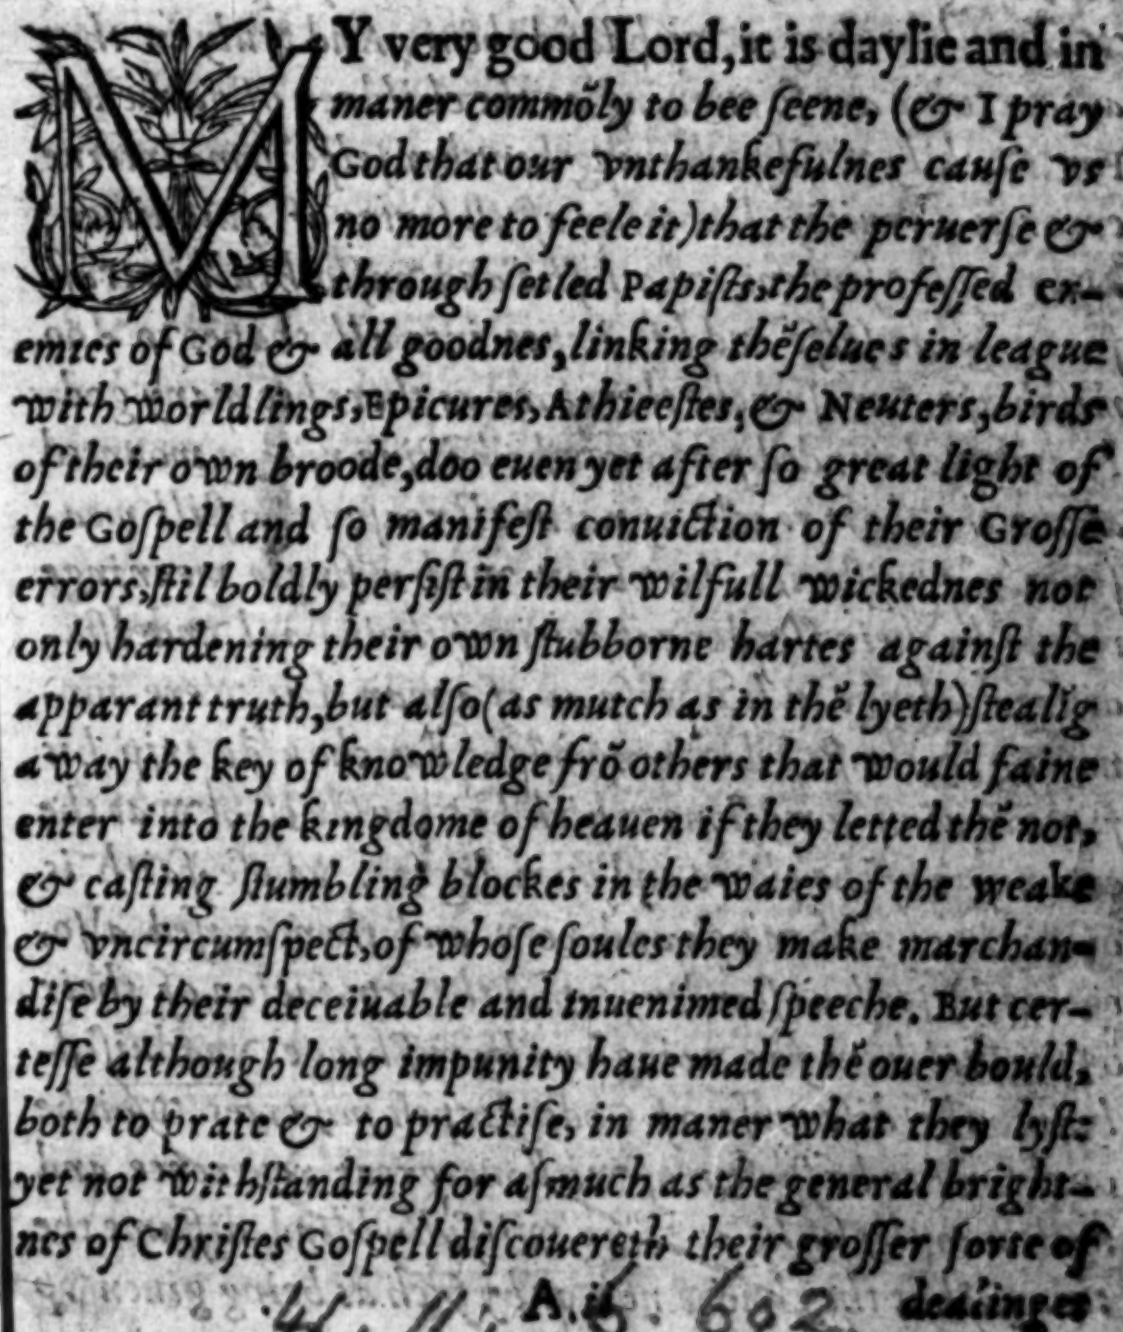 MY very good Lord, it is daylie and in
maner commõly to bee ſeene, (& I pray
God that our vnthankefulnes cauſe vs
no more to feele it) that the peruerſe &
through ſetled Papiſts, the profeſſed en-
emies of God & all goodnes, linking thẽſelues in league
with worldlings, Epicures, Athieeſtes, & Neuters, birds
of their own broode, doo euen yet after ſo great light of
the Goſpell and ſo manifeſt conuiction of their Groſſe
errors, ſtil boldly perſiſt in their wilfull wickednes not
only hardening their own ſtubborne hartes againſt the
apparant truth, but alſo (as mutch as in thẽ lyeth) ſtealĩg
away the key of knowledge frõ others that would faine
enter into the kingdome of heauen if they letted thẽ not,
& caſting ſtumbling blockes in the waies of the weake
& vncircumſpect, of whoſe ſoules they make marchan-
diſe by their deceiuable and inuenimed ſpeeche. But cer-
teſſe although long impunity haue made thẽ ouer bould,
both to prate & to practiſe, in maner what they lyſt:
yet not withſtanding for aſmuch as the general bright-
nes of Chriſtes Goſpell diſcouereth their groſſer ſorte of
A.ii. 602 dealinges